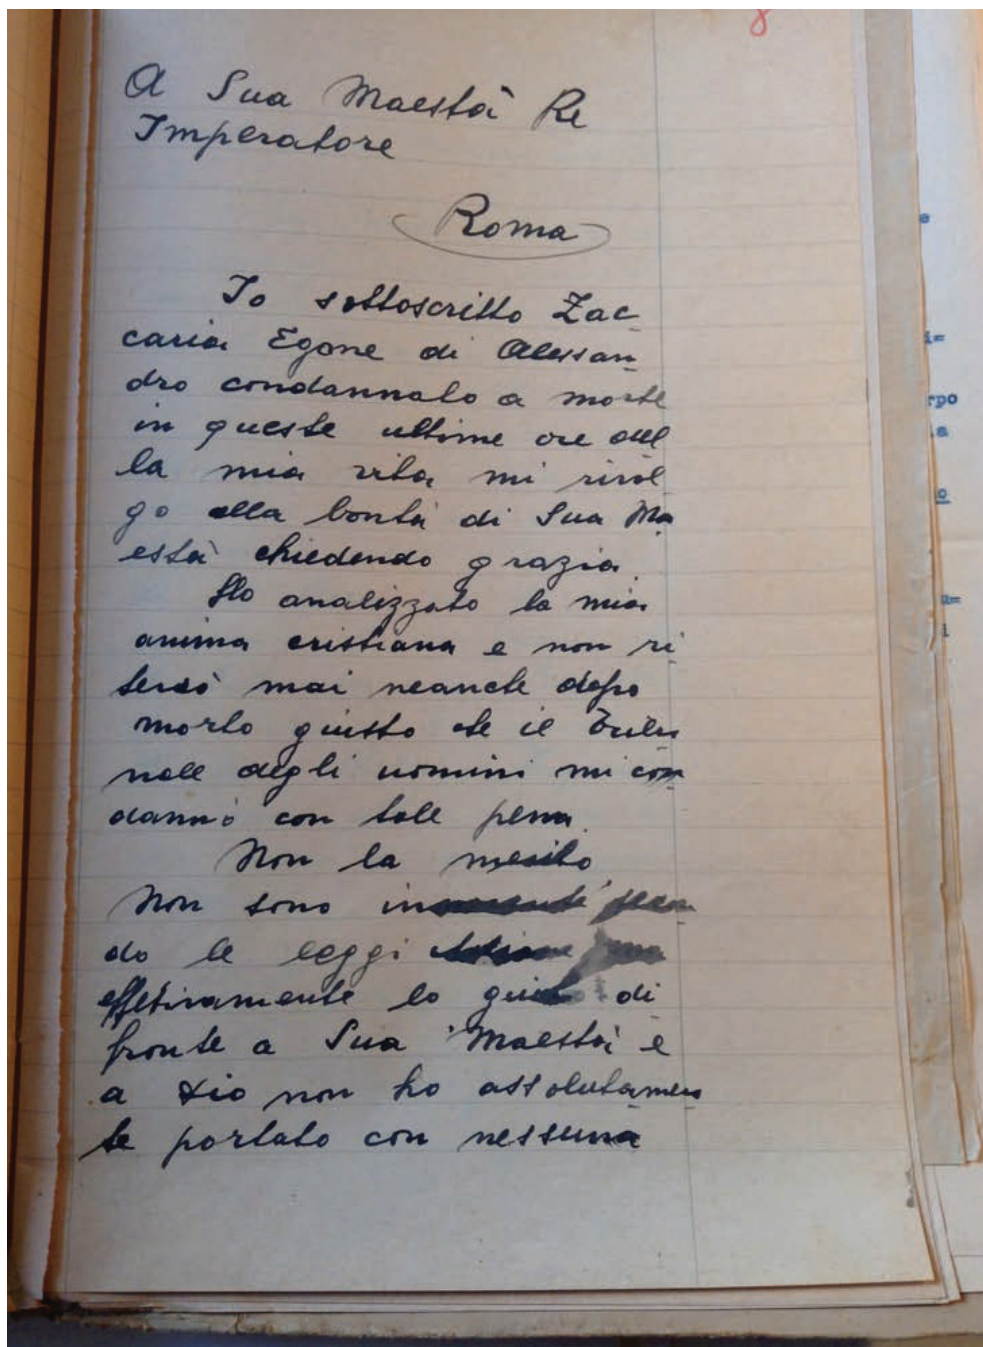 8
A Sua Maestà Re
Imperatore
Roma
Io sottoscritto Zac
caria Egone di Alessan
dro condannato a morte
in queste ultime ore del
la mia vita mi rivol
go alla bontà di Sua Ma
està chiedendo grazia.
Ho analizzato la mia
anima cristiana e non ri
terrò mai neanche dopo
morto giusto che il Tribu
nale degli uomini mi con
dannò con tale pena.
Non la merito.
Non sono innocente secon
do le leggi
effetivamente lo giuro di
fronte a Sua Maestà e
a Dio non ho assolutamen
te portato con nessuna
e
i=
rpo
a
o
a=
i